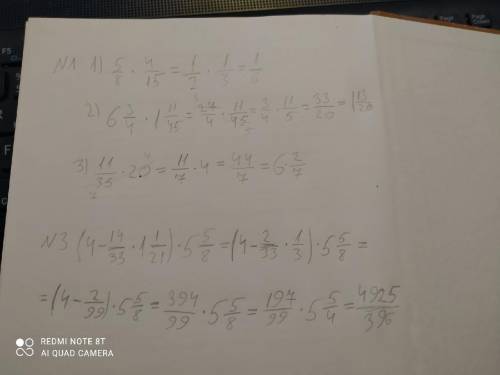 N1 1) 5/8 · 4/15 = 1/2 · 1/3 = 1/6
2) 6 3/4 · 1 11/45 = 27/4 · 11/45 = 3/4 · 11/5 = 33/20 = 1 13/20
3) 11/35 · 20 = 11/7 · 4 = 44/7 = 6 2/7
N3 (4 - 14/33 · 1 1/21) · 5 5/8 = (4 - 2/33 · 1/3) · 5 5/8 =
= (4 - 2/99) · 5 5/8 = 394/99 · 5 5/8 = 197/99 · 5 5/4 = 4925/396
REDMI NOTE 8T
AI QUAD CAMERA